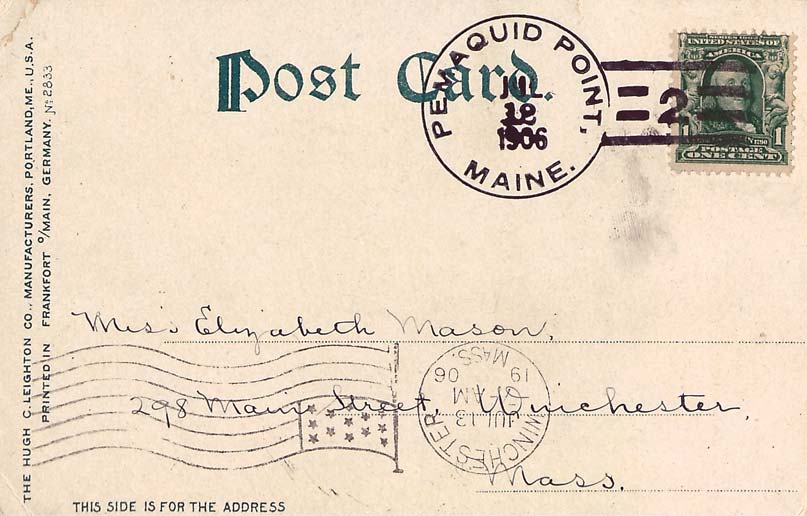 Post Card.
PEMAQUID POINT,
JUL
12
1906
MAINE.
2
UNITED STATES OF
AMERICA
1 1
POSTAGE
ONE CENT
THE HUGH C. LEIGHTON CO., MANUFACTURERS, PORTLAND, ME., U.S.A.
PRINTED IN FRANKFORT o/MAIN, GERMANY. No 2833
Miss Elizabeth Mason,
298 Main Street, Winchester,
Mass.
WINCHESTER
MASS.
JUL 13
AM
19 06
THIS SIDE IS FOR THE ADDRESS